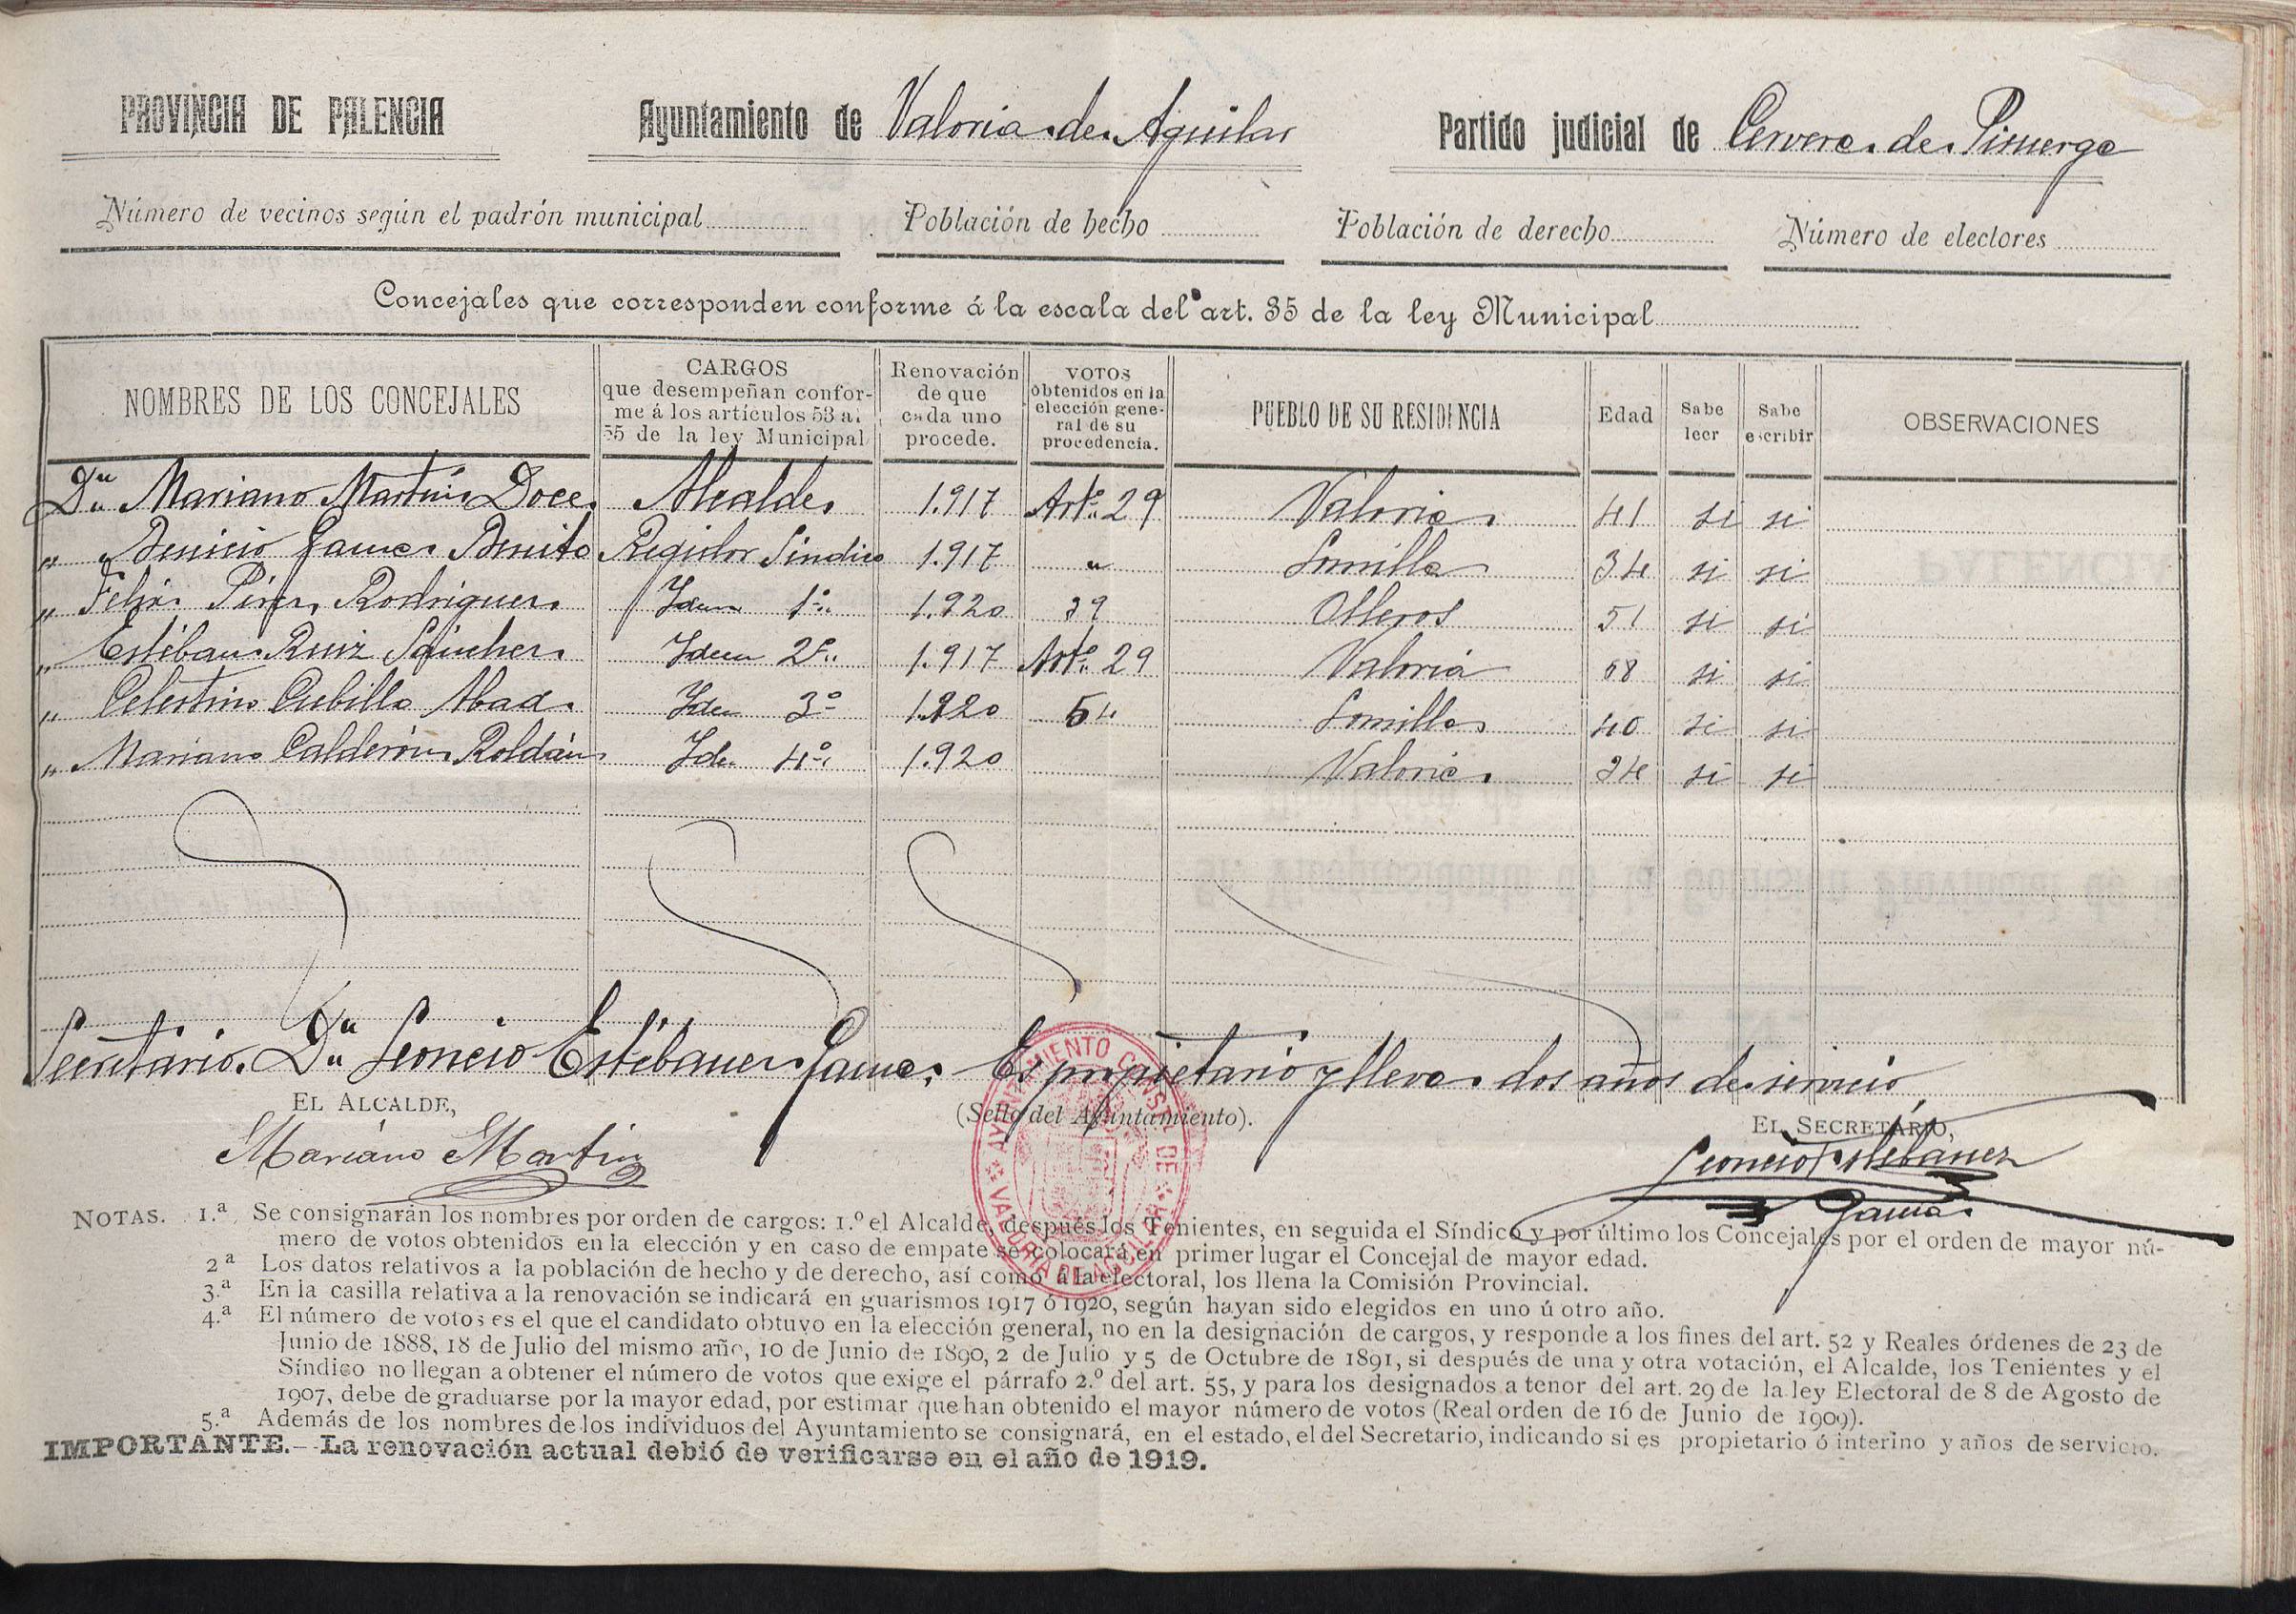 PROVINCIA DE PALENCIA Ayuntamiento de Valoria de Aguilar Partido judicial de Cervera de Pisuerga
Número de vecinos según el padrón municipal Población de hecho Población de derecho Número de electores
Concejales que corresponden conforme á la escala del art. 35 de la ley Municipal
NOMBRES DE LOS CONCEJALES
CARGOS
que desempeñan confor-
me á los artículos 53 al
55 de la ley Municipal
Renovación
de que
cada uno
procede.
VOTOS
obtenidos en la
elección gene-
ral de su
procedencia.
PUEBLO DE SU RESIDENCIA
Edad
Sabe
leer
Sabe
escribir
OBSERVACIONES
Dn Mariano Martín Doce Alcalde 1.917 Arto 29 Valoria 41 si si
" Benicio Gama Benito Regidor Sindico 1.917 " Lomilla 34 si si
" Felix Pérez Rodriguez Idem 1º 1.920 39 Olleros 51 si si
" Estéban Ruiz Sánchez Idem 2º 1.917 Arto 29 Valoria 68 si si
" Celestino Cubillo Abad Idem 3º 1.920 54 Lomilla 40 si si
" Mariano Calderón Roldán Idem 4º 1.920 Valoria 34 si si
Secretario. Dn Leoncio Estébanez Gama. Es propietario y lleva dos años de servicio
EL ALCALDE,
(Sello del Ayuntamiento).
EL SECRETARIO,
Mariano Martin
Leoncio Estébanez
Gama
AYUNTAMIENTO CONSTL DE VALORIA DE AGUILAR
NOTAS. 1.ª Se consignarán los nombres por orden de cargos: 1.º el Alcalde, después los Tenientes, en seguida el Síndico y por último los Concejales por el orden de mayor nú-
mero de votos obtenidos en la elección y en caso de empate se colocará en primer lugar el Concejal de mayor edad.
2ª Los datos relativos a la población de hecho y de derecho, así como á la electoral, los llena la Comisión Provincial.
3.ª En la casilla relativa a la renovación se indicará en guarismos 1917 ó 1920, según hayan sido elegidos en uno ú otro año.
4.ª El número de votos es el que el candidato obtuvo en la elección general, no en la designación de cargos, y responde a los fines del art. 52 y Reales órdenes de 23 de
Junio de 1888, 18 de Julio del mismo año, 10 de Junio de 1890, 2 de Julio y 5 de Octubre de 1891, si después de una y otra votación, el Alcalde, los Tenientes y el
Síndico no llegan a obtener el número de votos que exige el párrafo 2.º del art. 55, y para los designados a tenor del art. 29 de la ley Electoral de 8 de Agosto de
1907, debe de graduarse por la mayor edad, por estimar que han obtenido el mayor número de votos (Real orden de 16 de Junio de 1909).
5.ª Además de los nombres de los individuos del Ayuntamiento se consignará, en el estado, el del Secretario, indicando si es propietario ó interino y años de servicio.
IMPORTANTE.—La renovación actual debió de verificarse en el año de 1919.